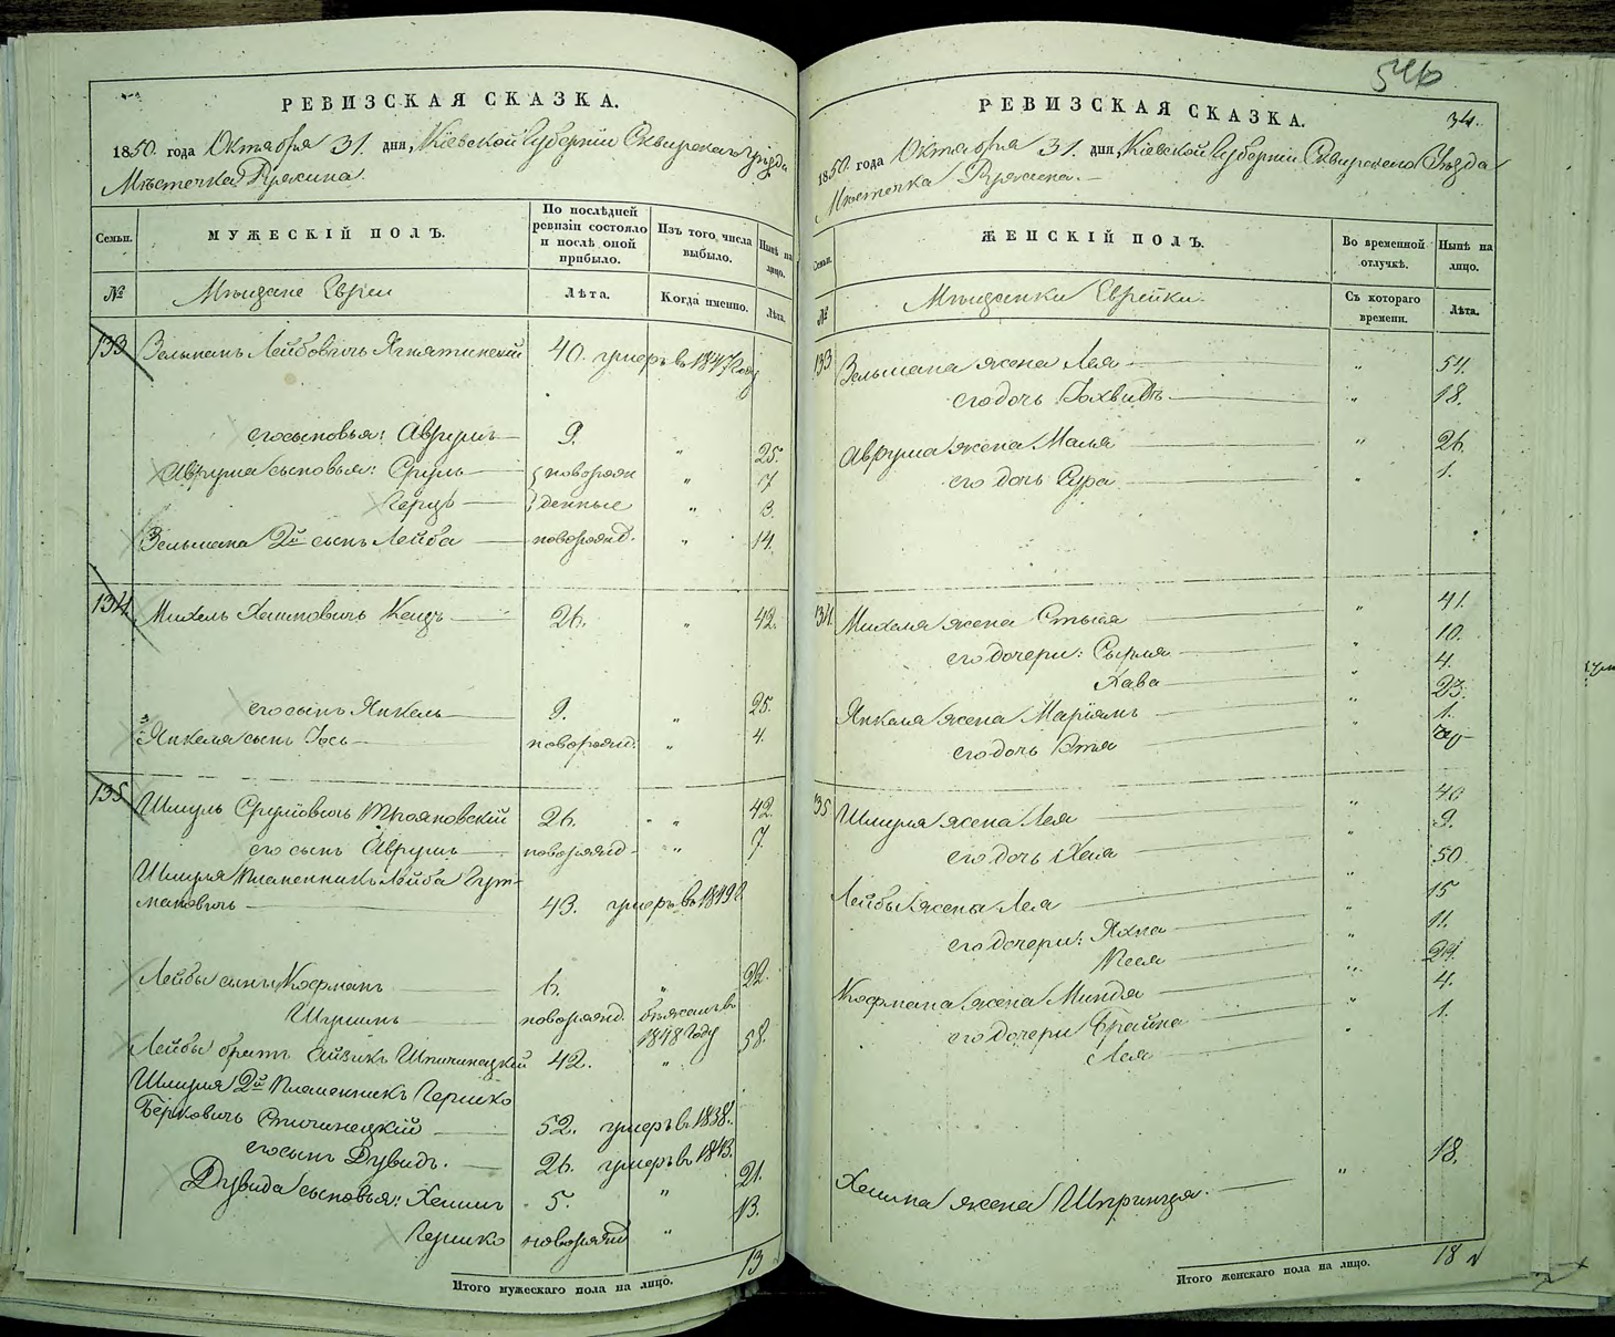 РЕВИЗСКАЯ СКАЗКА.
1850. года Октября 31. дня, Кіевской Губерніи Сквирскаго уѣзда
Мѣстечка Ружина.
Семьи.
МУЖЕСКІЙ ПОЛЪ.
По послѣдней ревизіи состояло и послѣ оной прибыло.
Изъ того числа выбыло.
Нынѣ на лицо.
№
Мѣщане Евреи
Лѣта.
Когда именно.
Лѣта.
133 Зельманъ Лейбовичъ 40. умеръ въ 1847 году
его сыновья: Аврумъ 9. " 25.
Аврума сыновья: Сруль новорож " 7
Герцъ денные " 3.
Зельмана 2й сынъ Лейба новорожд. " 14.
134 Михель Хаимовичъ Кацъ 26. " 42.
его сынъ Янкель 9. " 25.
Янкеля сынъ Іось новорожд. " 4.
135 Шмуль Срулiовичъ Трояновскій 26. " 42.
его сынъ Аврумъ новорожд. " 7.
Шмуля племенникъ Лейба Гут-
мановичъ 43. умеръ въ 1849
Лейбы сынъ Кофманъ 6. " 22.
новорожд. бѣжалъ въ
1848 году
Лейбы братъ Айзикъ 42. " 58.
Шмуля 2й племенникъ Гершко
Берковичъ 52. умеръ въ 1838.
его сынъ Дувидъ. 26. умеръ въ 1843.
Дувида сыновья: Хаимъ 5. " 21.
Гершко новорожд " 13.
Итого мужескаго пола на лицо. 13
546
РЕВИЗСКАЯ СКАЗКА. 34.
1850. года Октября 31. дня, Кіевской Губерніи Сквирскаго Уѣзда
Мѣстечка Ружина.
Семьи.
ЖЕНСКІЙ ПОЛЪ.
Во временной отлучкѣ.
Нынѣ на лицо.
№
Мѣщанки Еврейки.
Съ котораго времени.
Лѣта.
133 Зельмана жена Лея " 54.
его дочь " 18.
Аврума жена Малья " 26.
его дочь Сура " 1.
134 Михеля жена " 41.
его дочери: Сырля " 10.
Хава " 4.
Янкеля жена Маріямъ " 23.
его дочь " 1.
135 Шмуля жена Лея " 40
его дочь Хая " 9.
Лейбы жена Лея " 50
его дочери: Яхна " 15
Песя " 11.
Кофмана жена Миндя " 24.
его дочери Фрайна " 4.
Лея " 1.
Хаима жена Шпринця. " 18.
Итого женскаго пола на лицо. 18